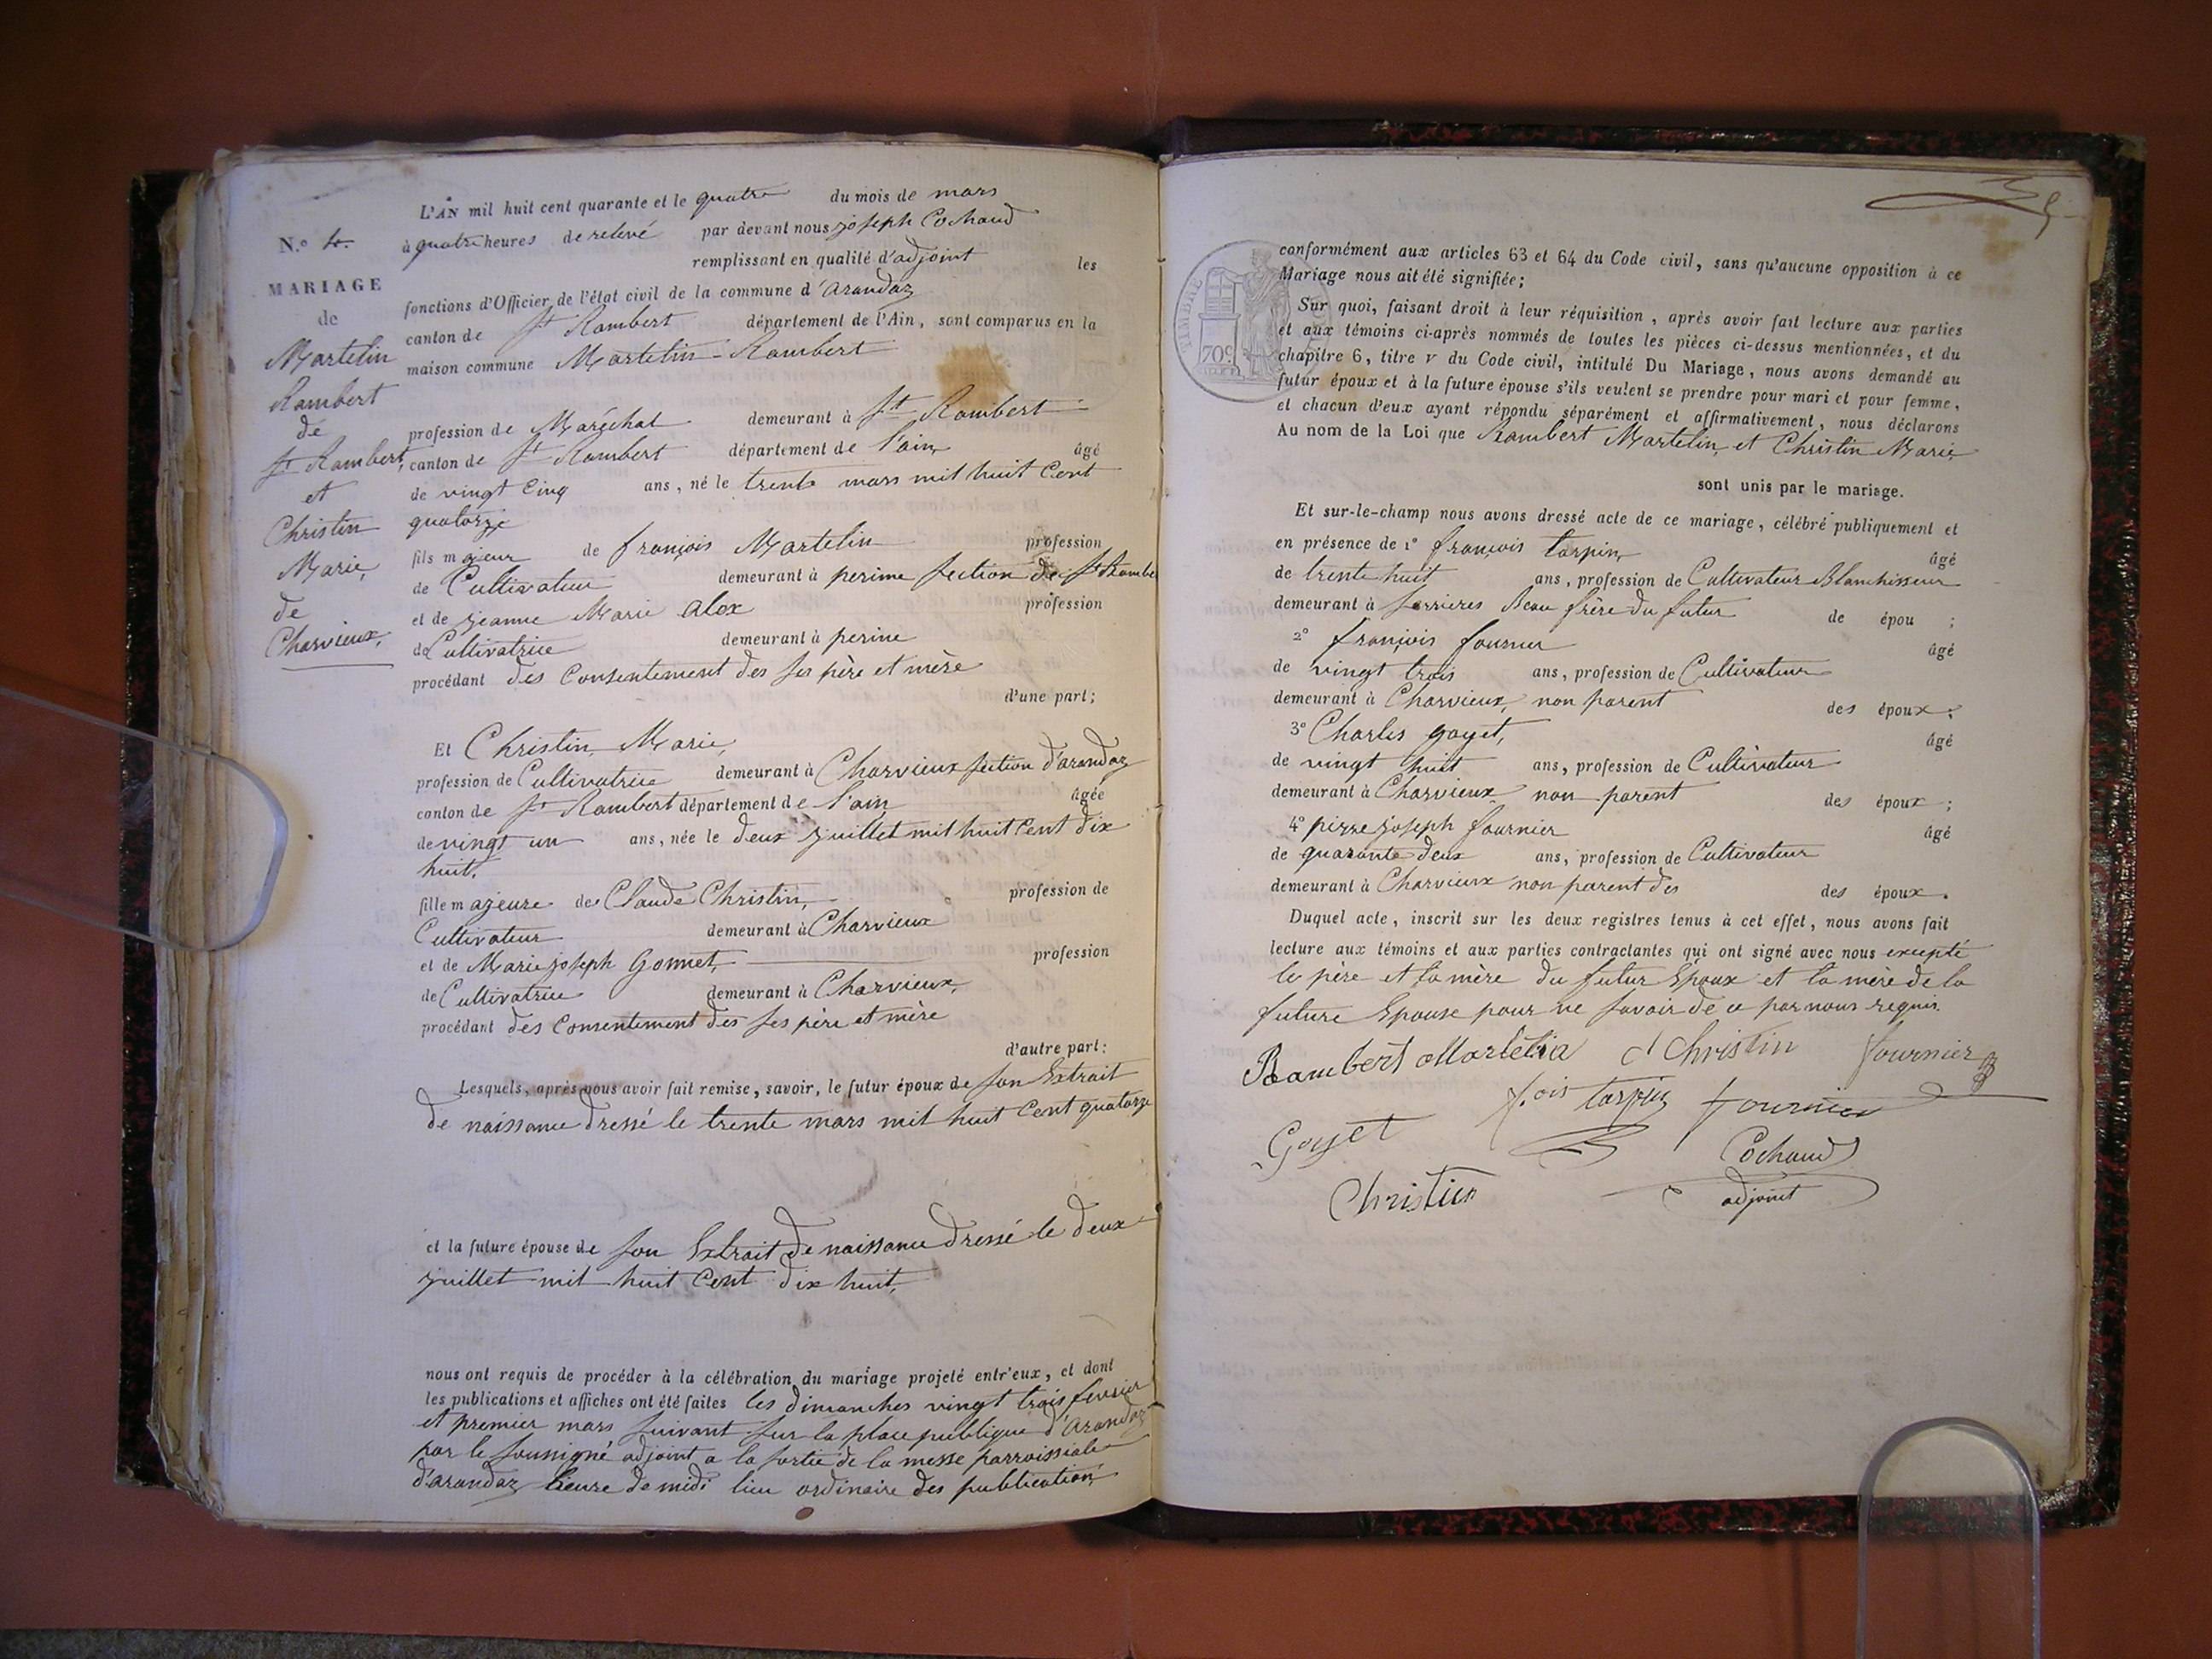 N.o 4.
MARIAGE
de
Martelin
Rambert
de
St Rambert,
et
Christin
Marie,
de
Charvieux,
L'AN mil huit cent quarante et le quatre du mois de mars
à quatre heures de relevé par devant nous joseph Cochaud
remplissant en qualité d'adjoint les
fonctions d'Officier de l'état civil de la commune d'arandaz
canton de St Rambert département de l'Ain, sont comparus en la
maison commune Martelin Rambert
profession de Maréchal demeurant à St Rambert
canton de St Rambert département de l'ain, âgé
de vingt cinq ans, né le trente mars mil huit Cent
quatorze
fils majeur de françois Martelin profession
de Cultivateur demeurant à perine section de St Rambe
et de jeanne Marie alex profession
de Cultivatrice demeurant à perine
procédant des Consentement des ses père et mère
d'une part;
Et Christin, Marie,
profession de Cultivatrice demeurant à Charvieux section d'arandaz
canton de St Rambert département de l'ain âgée
de vingt un ans, née le deux juillet mil huit Cent dix
huit.
fille majeure de Claude Christin, profession de
Cultivateur demeurant à Charvieux
et de Marie joseph Gonnet, profession
de Cultivatrice demeurant à Charvieux,
procédant des Consentement des ses père et mère
d'autre part:
Lesquels, après nous avoir fait remise, savoir, le futur époux de son Extrait
de naissance dressé le trente mars mil huit Cent quatorze
et la future épouse de son Extrait de naissance dressé le deux
juillet mil huit Cent dix huit,
nous ont requis de procéder à la célébration du mariage projeté entr'eux, et dont
les publications et affiches ont été faites les dimanches vingt trois fevrier
et premier mars suivant sur la place publique d'Arandaz
par le soussigné adjoint a la sortie de la messe parroissiale
d'arandaz heure de midi lieu ordinaire des publication,
conformément aux articles 63 et 64 du Code civil, sans qu'aucune opposition à ce
Mariage nous ait été signifiée;
TIMBRE
70c
Sur quoi, faisant droit à leur réquisition, après avoir fait lecture aux parties
et aux témoins ci-après nommés de toutes les pièces ci-dessus mentionnées, et du
chapitre 6, titre v du Code civil, intitulé Du Mariage, nous avons demandé au
futur époux et à la future épouse s'ils veulent se prendre pour mari et pour femme,
et chacun d'eux ayant répondu séparément et affirmativement, nous déclarons
Au nom de la Loi que Rambert Martelin, et Christin Marie
sont unis par le mariage.
Et sur-le-champ nous avons dressé acte de ce mariage, célébré publiquement et
en présence de 1o françois tarpin, âgé
de trente huit ans, profession de Cultivateur Blanchisseur
demeurant à serrieres Beau frère du futur de épou ;
2o françois fournier âgé
de vingt trois ans, profession de Cultivateur
demeurant à Charvieux, non parent des époux ;
3o Charles goyet, âgé
de vingt huit ans, profession de Cultivateur
demeurant à Charvieux non parent des époux ;
4o pierre joseph fournier âgé
de quarante deux ans, profession de Cultivateur
demeurant à Charvieux non parent des des époux.
Duquel acte, inscrit sur les deux registres tenus à cet effet, nous avons fait
lecture aux témoins et aux parties contractantes qui ont signé avec nous excepté
le père et la mère du futur Epoux et la mère de la
future Epouse pour ne savoir de ce par nous requis.
Rambert Martelin Christin fournier
f.ois tarpin fournier
Goyet
Cochaud
Christin adjoint